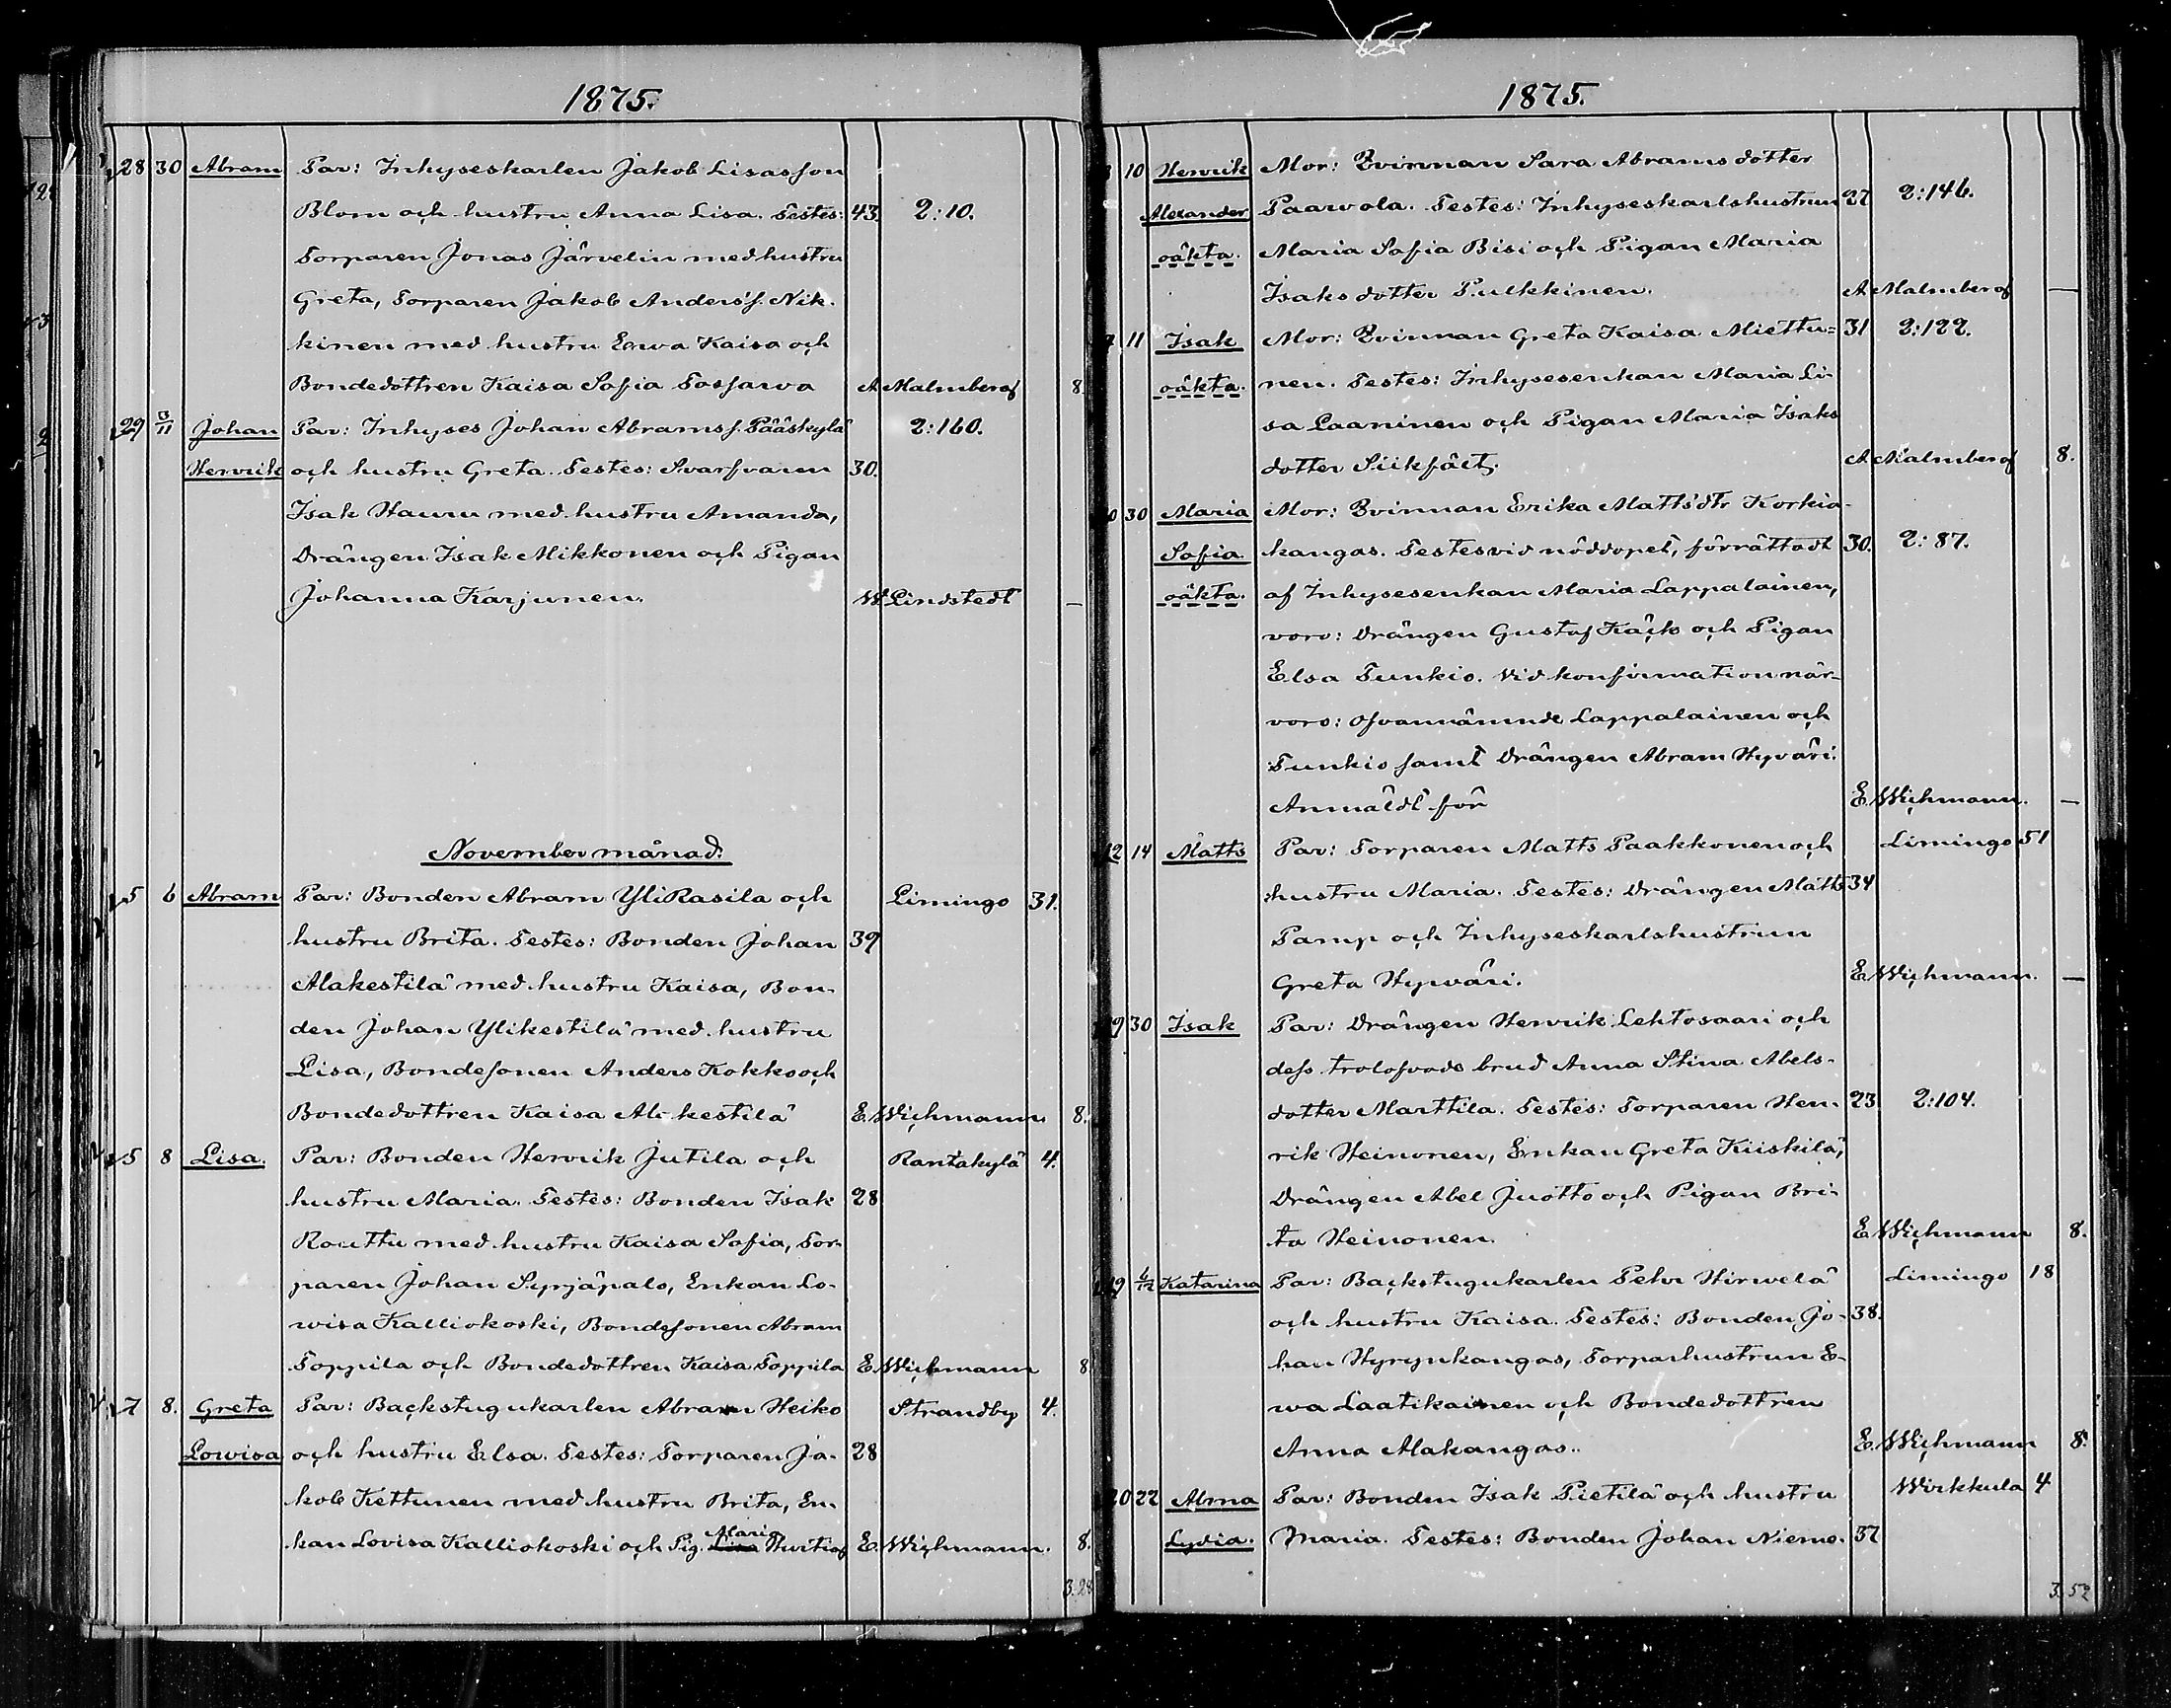 1875.
28 30 Abram Par: Inhyseskarlen Jakob Lisasson
Blom och hustru Anna Lisa. Testes: 43. 2:10.
Torparen Jonas Järvelin med hustru
Greta, Torparen Jakob Anders's. Nik-
kinen med hustru Ewa Kaisa och
Bondedottren Kaisa Sofia Tossawa A Malmberg 8.
29 3/11 Johan Par: Inhyses Johan Abramss. Pääskylä 2:160.
Henrik och hustru Greta. Testes: Svarfvaren 30.
Isak Hauru med hustru Amanda,
Drängen Isak Mikkonen och Pigan
Johanna Karjunen. W. Lindstedt —
November månad.
5 6 Abram Par: Bonden Abram YliRasila och Limingo 31.
hustru Brita. Testes: Bonden Johan 39
Alakestilä med hustru Kaisa, Bon-
den Johan Ylikestilä med hustru
Lisa, Bondesonen Anders Kokko och
Bondedottren Kaisa Alakestilä E. Wichmann. 8.
5 8 Lisa. Par: Bonden Henrik Jutila och Rantakylä 4.
hustru Maria. Testes: Bonden Isak 28
Routtu med hustru Kaisa Sofia, Tor-
paren Johan Syrjäpalo, Enkan Lo-
wisa Kalliokoski, Bondesonen Abram
Toppila och Bondedottren Kaisa Toppila E. Wichmann 8
7 8. Greta Par: Backstugukarlen Abram Heiko Strandby 4.
Lowisa och hustru Elsa. Testes: Torparen Ja- 28
kob Kettunen med hustru Brita, En-
kan Lovisa Kalliokoski och Pig. Maria Hurtig E. Wichmann. 8.
3.28
1875.
10 Henrik Mor: Qvinnan Sara Abrams dotter
Alexander Paavola. Testes: Inhyseskarlshustrun 27 2:146.
oäkta. Maria Sofia Bisi och Pigan Maria
Isaks dotter Pulkkinen. A Malmberg —
11 Isak Mor: Qvinnan Greta Kaisa Miettu= 31 2:122.
oäkta. nen. Testes: Inhysesenkan Maria Li-
sa Laaninen och Pigan Maria Isaks
dotter A Malmberg 8.
30 Maria Mor: Qvinnan Erika Matts'dtr Korkia-
Sofia kangas. Testes vid nöddopet, förrättadt 30. 2:87.
oäkta. af Inhysesenkan Maria Lappalainen,
voro: Drängen Gustaf Käck och Pigan
Elsa Tunkio. Vid konfirmation när-
voro: ofvannämnde Lappalainen och
Tunkio samt Drängen Abram Hyväri.
Anmäldt för E. Wichmann. —
12 14 Matts Par: Torparen Matts Paakkonen och Limingo 51
hustru Maria. Testes: Drängen Matts 34
Pamp och Inhyseskarlshustrun
Greta Hyväri. E Wichmann. —
19 30 Isak Par: Drängen Henrik Lehtosaari och
dess trolofvade brud Anna Stina Abels-
dotter Marttila. Testes: Torparen Hen- 23 2:104.
rik Heinonen, Enkan Greta Kiiskilä,
Drängen Abel Juotto och Pigan Bri-
ta Heinonen. E Wichmann 8.
19 Katarina Par: Backstugukarlen Pehr Hirwelä Limingo 18
och hustru Kaisa. Testes: Bonden Jo- 38.
han Hyrynkangas, Torparhustrun E-
wa Laatikainen och Bondedottren
Anna Alakangas. E. Wichmann 8.
20 22 Alma Par: Bonden Isak Pietilä och hustru Wirkkula 4
Lydia. Maria. Testes: Bonden Johan Nieme- 37
3.52